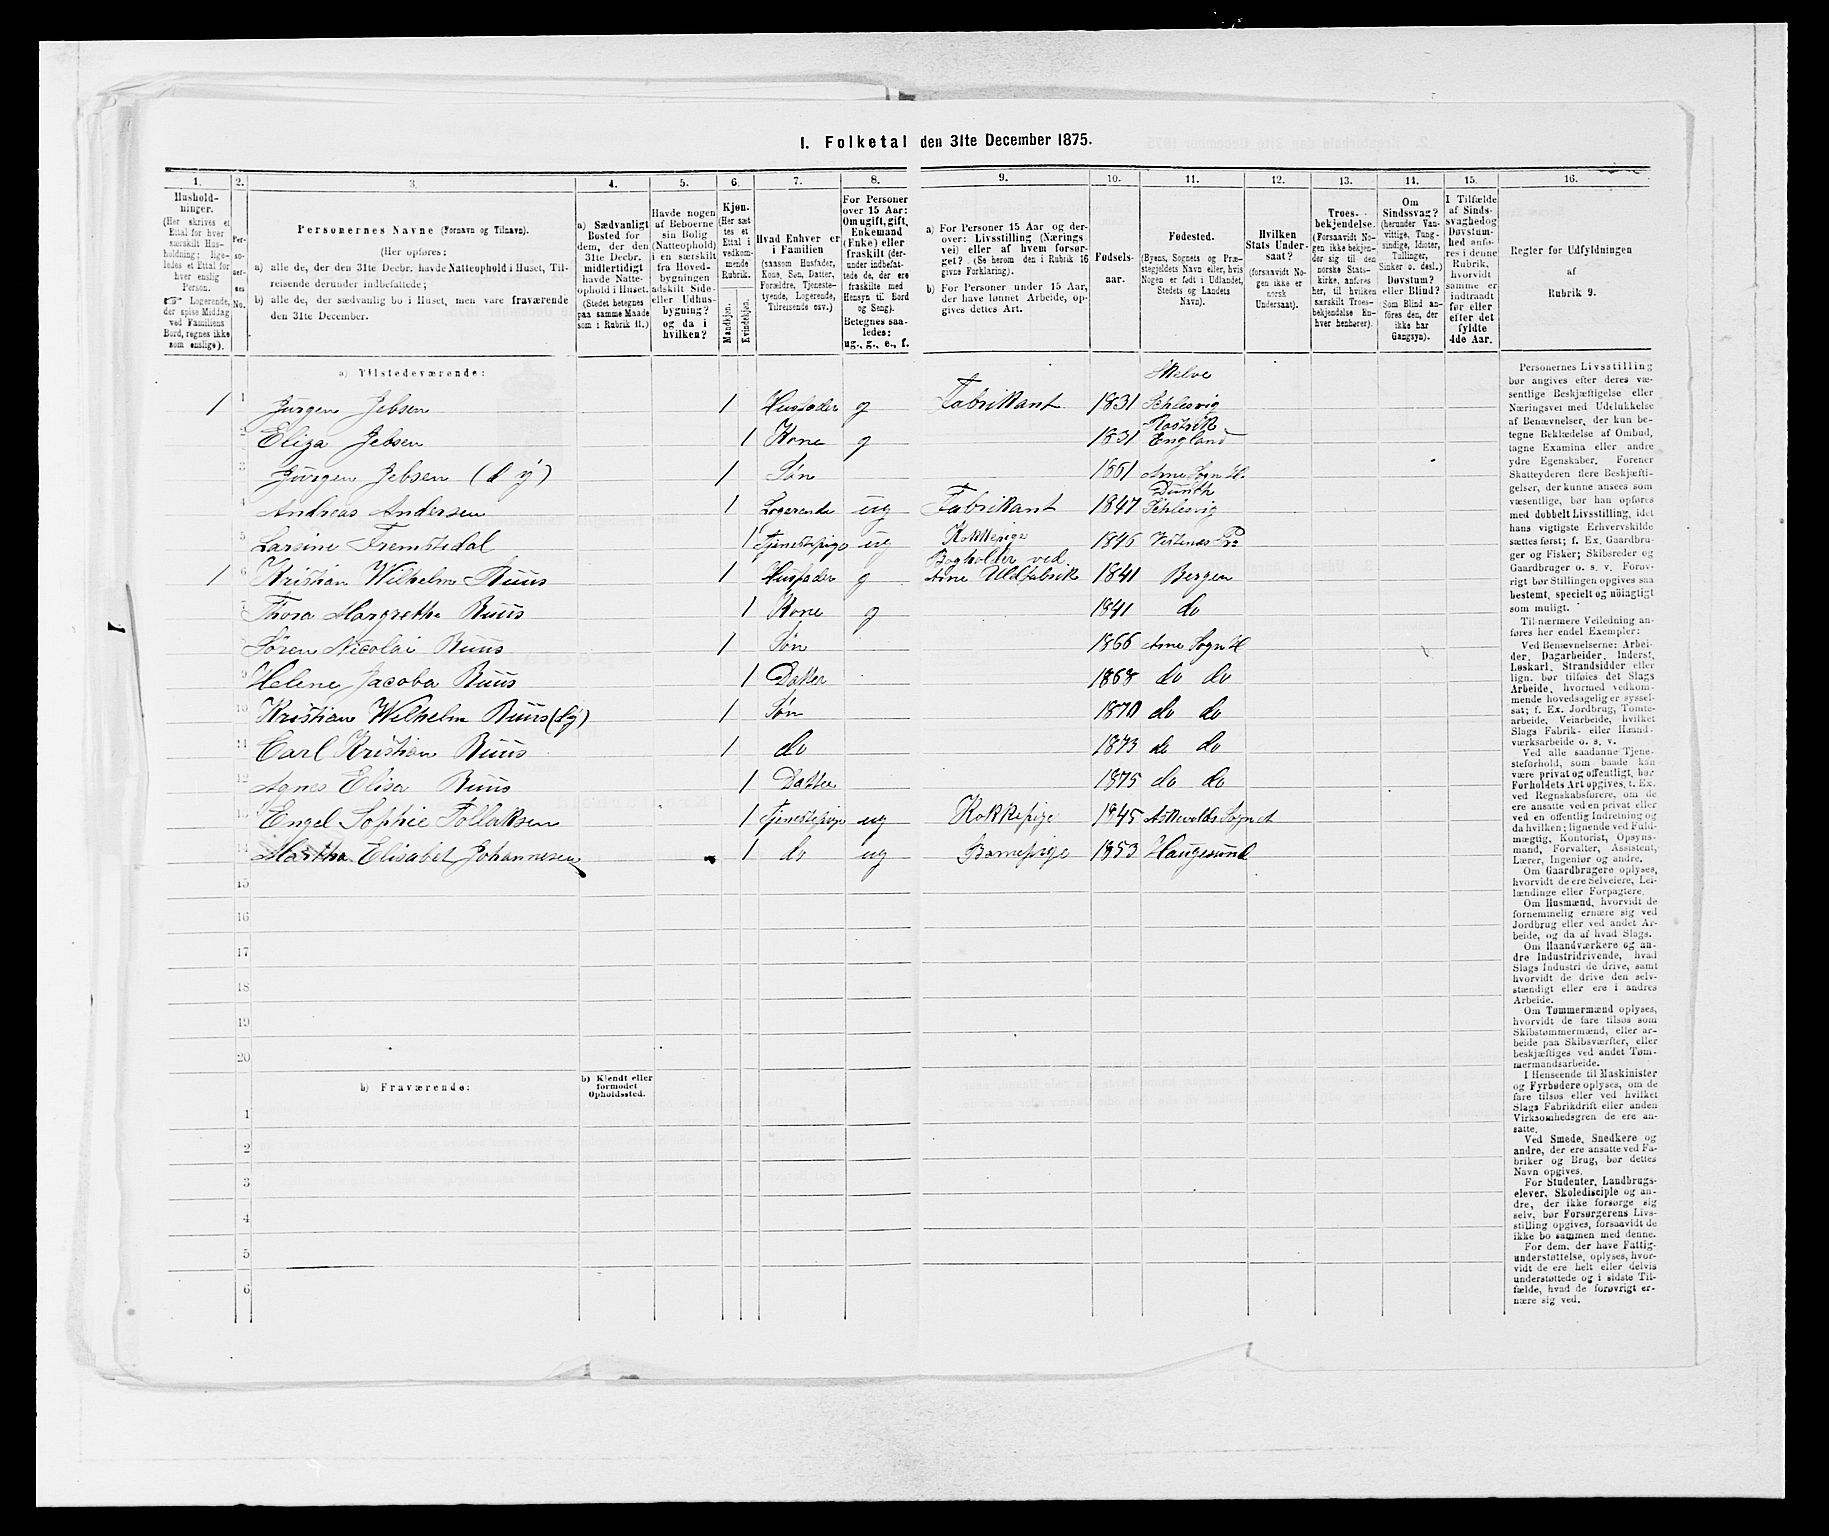 I. Folketal den 31te December 1875.
1. 2. 3. 4. 5. 6. 7. 8. 9. 10. 11. 12. 13. 14. 15. 16.
Hushold-
ninger.
(Her skrives et
Ettal for hver
særskilt Hus-
holdning; lige-
ledes et Ettal for
hver enslig
Person.
☞ Logerende,
der spise Middag
ved Familiens
Bord, regnes ikke
som enslige).
Per-
so-
ner-
nes
No.
Personernes Navne (Fornavn og Tilnavn).
(Her opføres:
a) alle de, der den 31te Decbr. havde Natteophold i Huset, Til-
reisende derunder indbefattede;
b) alle de, der sædvanlig bo i Huset, men vare fraværende
den 31te December.
a) Sædvanligt
Bosted for
dem, der den
31te Decbr.
midlertidigt
havde Natte-
ophold i Huset.
(Stedet betegnes
paa samme Maade
som i Rubrik 11.)
Havde nogen
af Beboerne
sin Bolig
(Natteophold)
i en særskilt
fra Hoved-
bygningen
adskilt Side-
eller Udhus-
bygning?
og da i
hvilken?
Kjøn.
(Her sæt-
tes et
Ettal i
vedkom-
mende
Rubrik.
Mandkjøn.
Kvindekjøn.
Hvad Enhver er
i Familien
(saasom Husfader,
Kone, Søn, Datter,
Forældre, Tjeneste-
tyende, Logerende,
Tilreisende osv.)
For Personer
over 15 Aar:
Om ugift, gift,
Enkemand
(Enke) eller
fraskilt (der-
under indbefat-
tede de, der ere
fraskilte med
Hensyn til Bord
og Seng).
Betegnes saa-
ledes:
ug., g., e., f.
a) For Personer 15 Aar og der-
over: Livsstilling (Nærings-
vei) eller af hvem forsør-
get? (Se herom den i Rubrik 16
givne Forklaring).
b) For Personer under 15 Aar,
der have lønnet Arbeide, op-
gives dettes Art.
Fødsels-
aar.
Fødested.
(Byens, Sognets og Præ-
stegjeldets Navn eller, hvis
Nogen er født i Udlandet,
Stedets og Landets
Navn).
Hvilken
Stats Under-
saat?
(forsaavidt No-
gen ikke er
norsk
Undersaat).
Troes-
bekjendelse.
(Forsaavidt No-
gen ikke bekjen-
der sig til den
norske Stats-
kirke, anføres
her, til hvilken
særskilt Troes-
bekjendelse En-
hver henhører).
Om
Sindssvag?
(herunder Van-
vittige, Tung-
sindige, Idioter,
Tullinger,
Sinker o. desl.)
Døvstum?
eller Blind?
(Som Blind an-
føres den, der
ikke har
Gangsyn).
I Tilfælde
af Sinds-
svaghed og
Døvstum-
hed anfø-
res i denne
Rubrik,
hvorvidt
samme er
indtraadt
før eller
efter det
fyldte
4de Aar.
Regler for Udfyldningen
af
Rubrik 9.
a) Tilstedeværende:
1 1 Jürgen Jebsen 1 Husfader g Fabrikant 1831 Schlesvig
2 Eliza Jebsen 1 Kone g 1831 England
3 Jürgen Jebsen (d y) 1 Søn 1861 Arne Sogn H.
4 Andreas Andersen 1 Logerende ug Fabrikant 1847 Schlesvig
5 Larsine Fremstedal 1 Tjenestepige ug Kokkepige 1846
Bogholder ved
1 6 Kristian Wilhelm Buus 1 Husfader g Arne Uldfabrik 1841 Bergen
7 Thora Margrethe Buus 1 Kone g 1841 do
8 Søren Nicolai Buus 1 Søn 1866 Arne Sogn H
9 Helene Jacoba Buus 1 Datter 1868 do do
10 Kristian Wilhelm Buus (dy) 1 Søn 1870 do do
11 Carl Kristian Buus 1 do 1873 do do
12 Agnes Elisa Buus 1 Datter 1875 do do
13 Engel Sophie Follaksen 1 Tjenestepige ug Kokkepige 1845 Askevolds Sogn
14 Martha Elisabet Johannesen 1 do ug Barnepige 1853 Haugesund
15
16
17
18
19
20
b) Fraværende:
b) Kjendt eller
formodet
Opholdssted.
1
2
3
4
5
6
Personernes Livsstilling
bør angives efter deres væ-
sentlige Beskjæftigelse eller
Næringsvei med Udelukkelse
af Benævnelser, der kun be-
tegne Beklædelse af Ombud,
tagne Examina eller andre
ydre Egenskaber. Forener
Skatteyderen flere Beskjæfti-
gelser, der kunne ansees som
væsentlige, bør han opføres
med dobbelt Livsstilling, idet
hans vigtigste Erhvervskilde
sættes først; f. Ex. Gaardbru-
ger og Fisker; Skibsreder og
Gaardbruger o. s. v. Forøv-
rigt bør Stillingen opgives saa
bestemt, specielt og nöiagtigt
som muligt.
Til nærmere Veiledning an-
føres her endel Exempler:
Ved Benævnelserne: Arbei-
der, Dagarbeider, Inderst,
Løskarl, Strandsidder eller
lign. bør tilføies det Slags
Arbeide, hvormed vedkom-
mende hovedsagelig er syssel-
sat; f. Ex. Jordbrug, Tomte-
arbeide, Veiarbeide, hvilket
Slags Fabrik- eller Haand-
værksarbeide o. s. v.
Ved alle saadanne Tjene-
steforhold, som baade kan
være privat og offentligt, bør
Forholdets Art opgives, t. Ex.
ved Regnskabsførere, om de
ere ansatte ved en privat eller
ved en offentlig Indretning og
da hvilken; lignende ved Fuld-
mægtig, Kontorist, Opsyns-
mand, Forvalter, Assistent,
Lærer, Ingeniør og andre.
Om Gaardbrugere oplyses,
hvorvidt de ere Selveiere, Lei-
lændinge eller Forpagtere.
Om Husmænd, hvorvidt de
fornemmelig ernære sig ved
Jordbrug eller ved andet Ar-
beide, og da af hvad Slags.
Om Haandværkere og an-
dre Industridrivende, hvad
Slags Industri de drive, samt
hvorvidt de drive den selv-
stændigt eller ere i andres
Arbeide.
Om Tømmermænd oplyses,
hvorvidt de fare tilsøs som
Skibstømmermænd, eller ar-
beide paa Skibsværfter, eller
beskjæftiges ved andet Tøm-
mermandsarbeide.
I Henseende til Maskinister
og Fyrbødere oplyses, om de
fare tilsøs eller ved hvilket
Slags Fabrikdrift eller anden
Virksomhedsgren de ere an-
satte.
Ved Smede, Snedkere og
andre, der ere ansatte ved Fa-
briker og Brug, bør dettes
Navn opgives.
For Studenter, Landbrugs-
elever, Skoledisciple og an-
dre, der ikke forsørge sig
selv, bør Forsørgerens Livs-
stilling opgives, forsaavidt de
ikke bo sammen med denne.
For dem, der have Fattig-
understøttelse, oplyses, hvor-
vidt de ere helt eller delvis
understøttede og i sidste Til-
fælde, hvad de forøvrigt er-
nære sig ved.